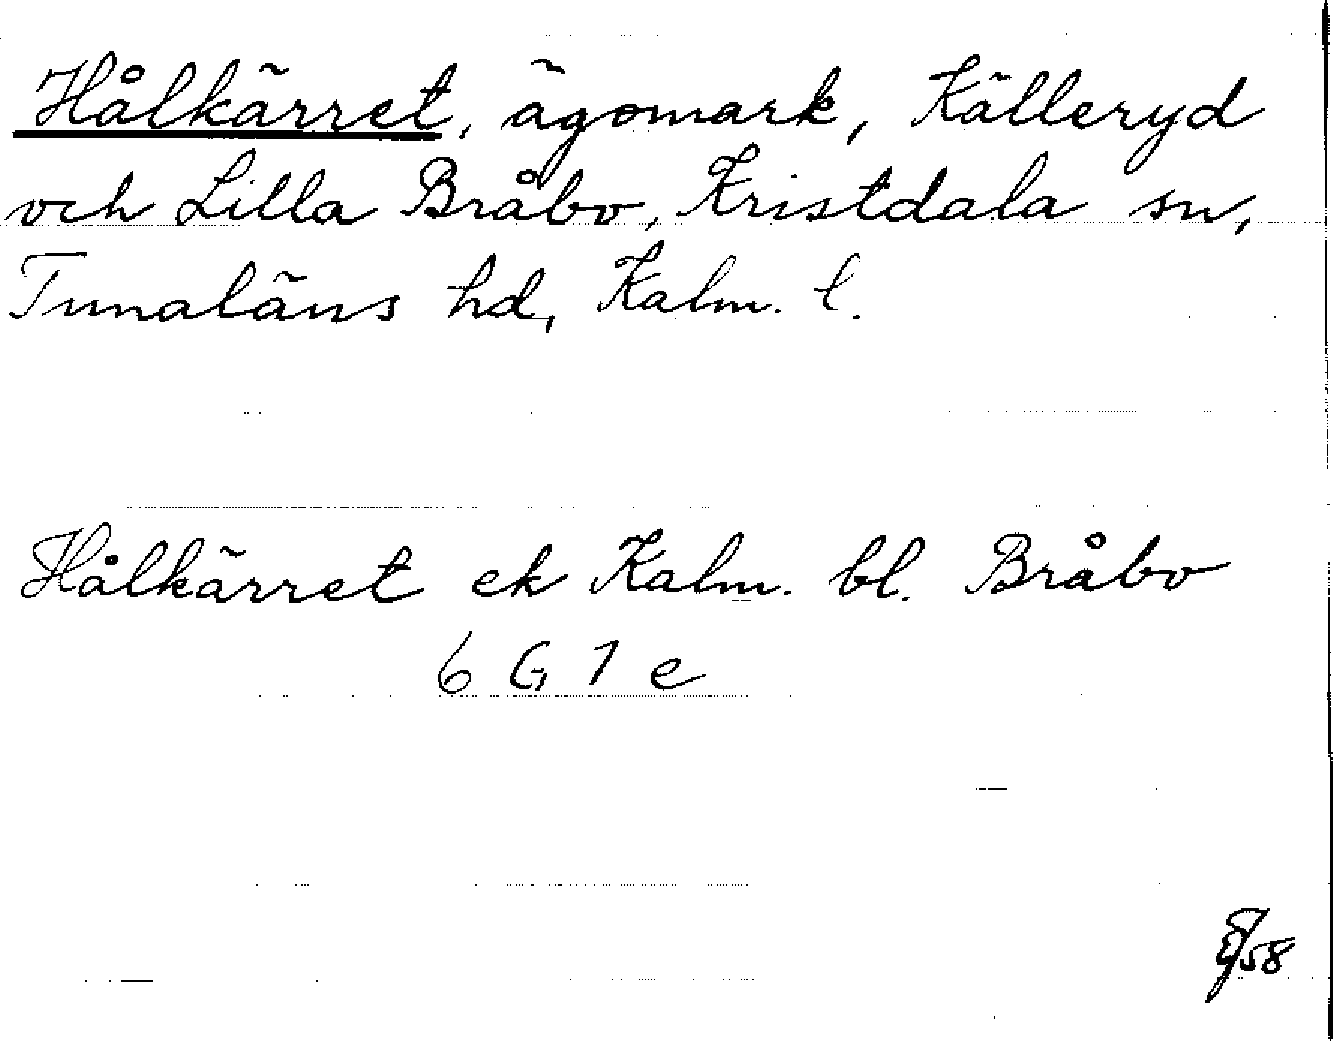 Hålkärret, ägomark, Källeryd
och Lilla Bråbo, Kristdala sn,
Tunaläns hd, Kalm. l.
Hålkärret ek Kalm. bl. Bråbo
6 G 1 e
58